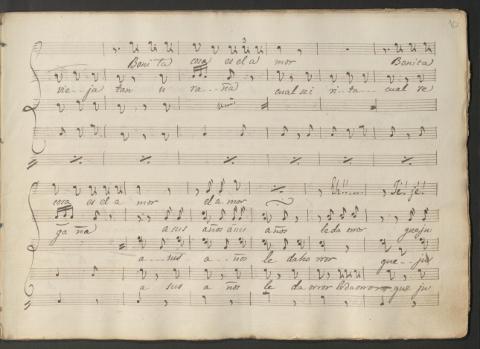 10
Boni ta cosa es el a mor Bonita
vie..ja tan u ra..ña cual sei ri..ta... cual re
cosa es el a mor el a mor Je! je!
ga ña a sus años a sus años le da orror que ju
a... sus a... ños le da ho rror que... ju
a sus a ños le da orror le da orror que ju